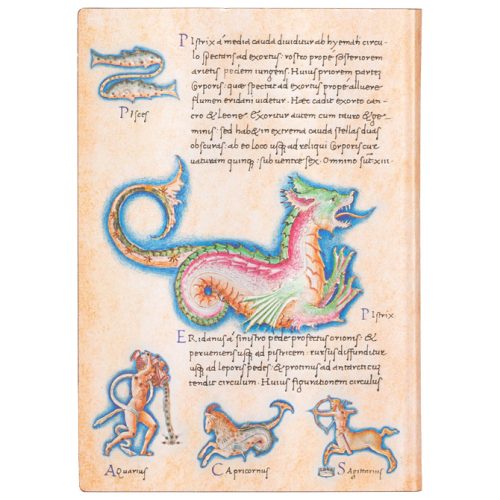 PIstrix á media cauda diuiditur ab hyemali circu-
lo spectans ad exortus: rostro prope posteriorem
arietis pedem iungens. Huius priorem partem
Corporis: quae spectat ad exortus prope alluere
flumen eridani uidetur. Haec cadit exorto can-
cro & Leone. Exoritur autem cum tauro & ge
minis: sed habet in extrema cauda stellas duas
obscuras: ab eo loco usque ad reliqui Corporis cur
uaturam quinque: sub uentre sex. Omnino sunt xiii.
PIsces
PIstrix.
ERidanus á sinistro pede profectus orionis: &
perueniens usque ad pistricem: rursus diffunditur
usque ad leporis pedes: & protinus ad antarcticum
tendit circulum. Huius figurationem circulus
AQuarius
CApricornus
SAgittarius